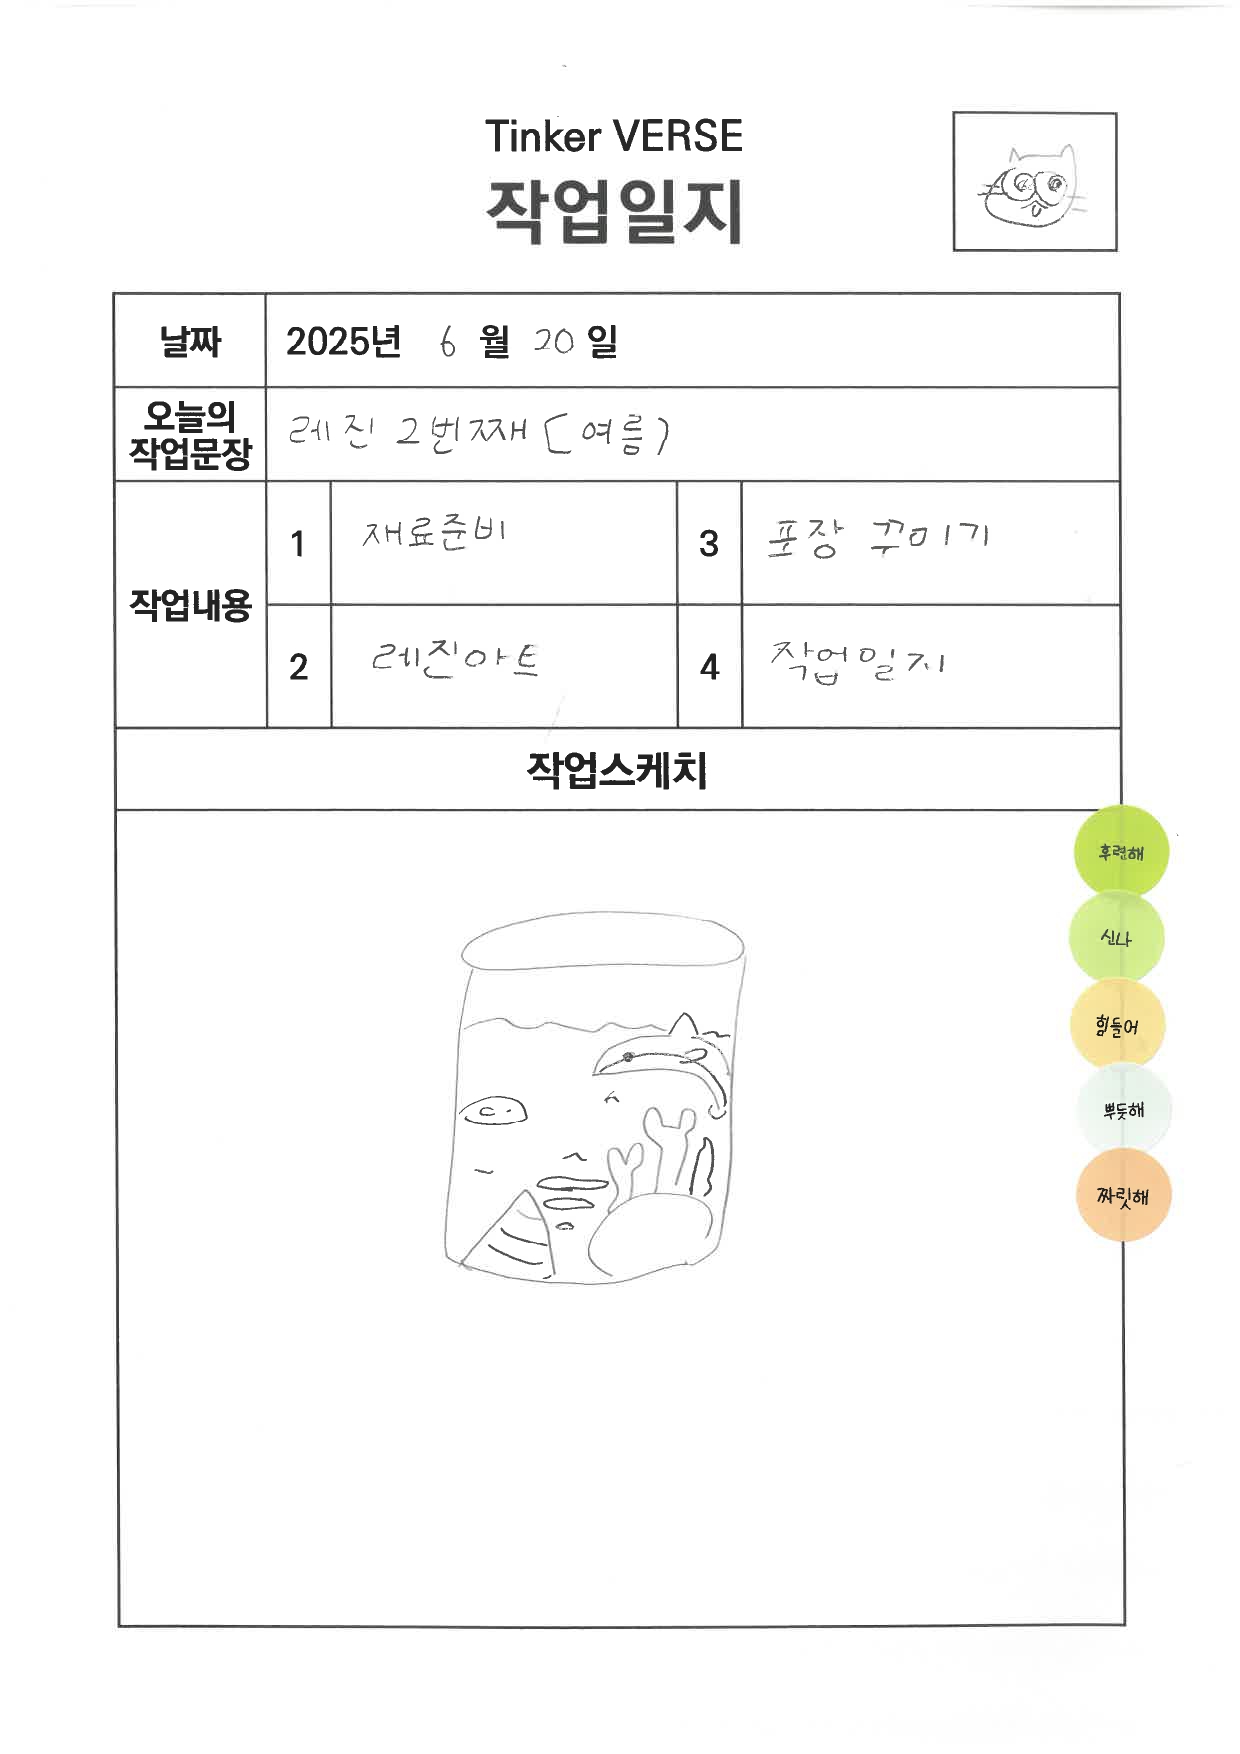 Tinker VERSE
작업일지
날짜
2025년 6월 20일
오늘의
작업문장
레진 2번째 (여름)
작업내용
1 재료준비
3 포장 꾸미기
2 레진아트
4 작업일지
작업스케치
후련해
신나
힘들어
뿌듯해
짜릿해